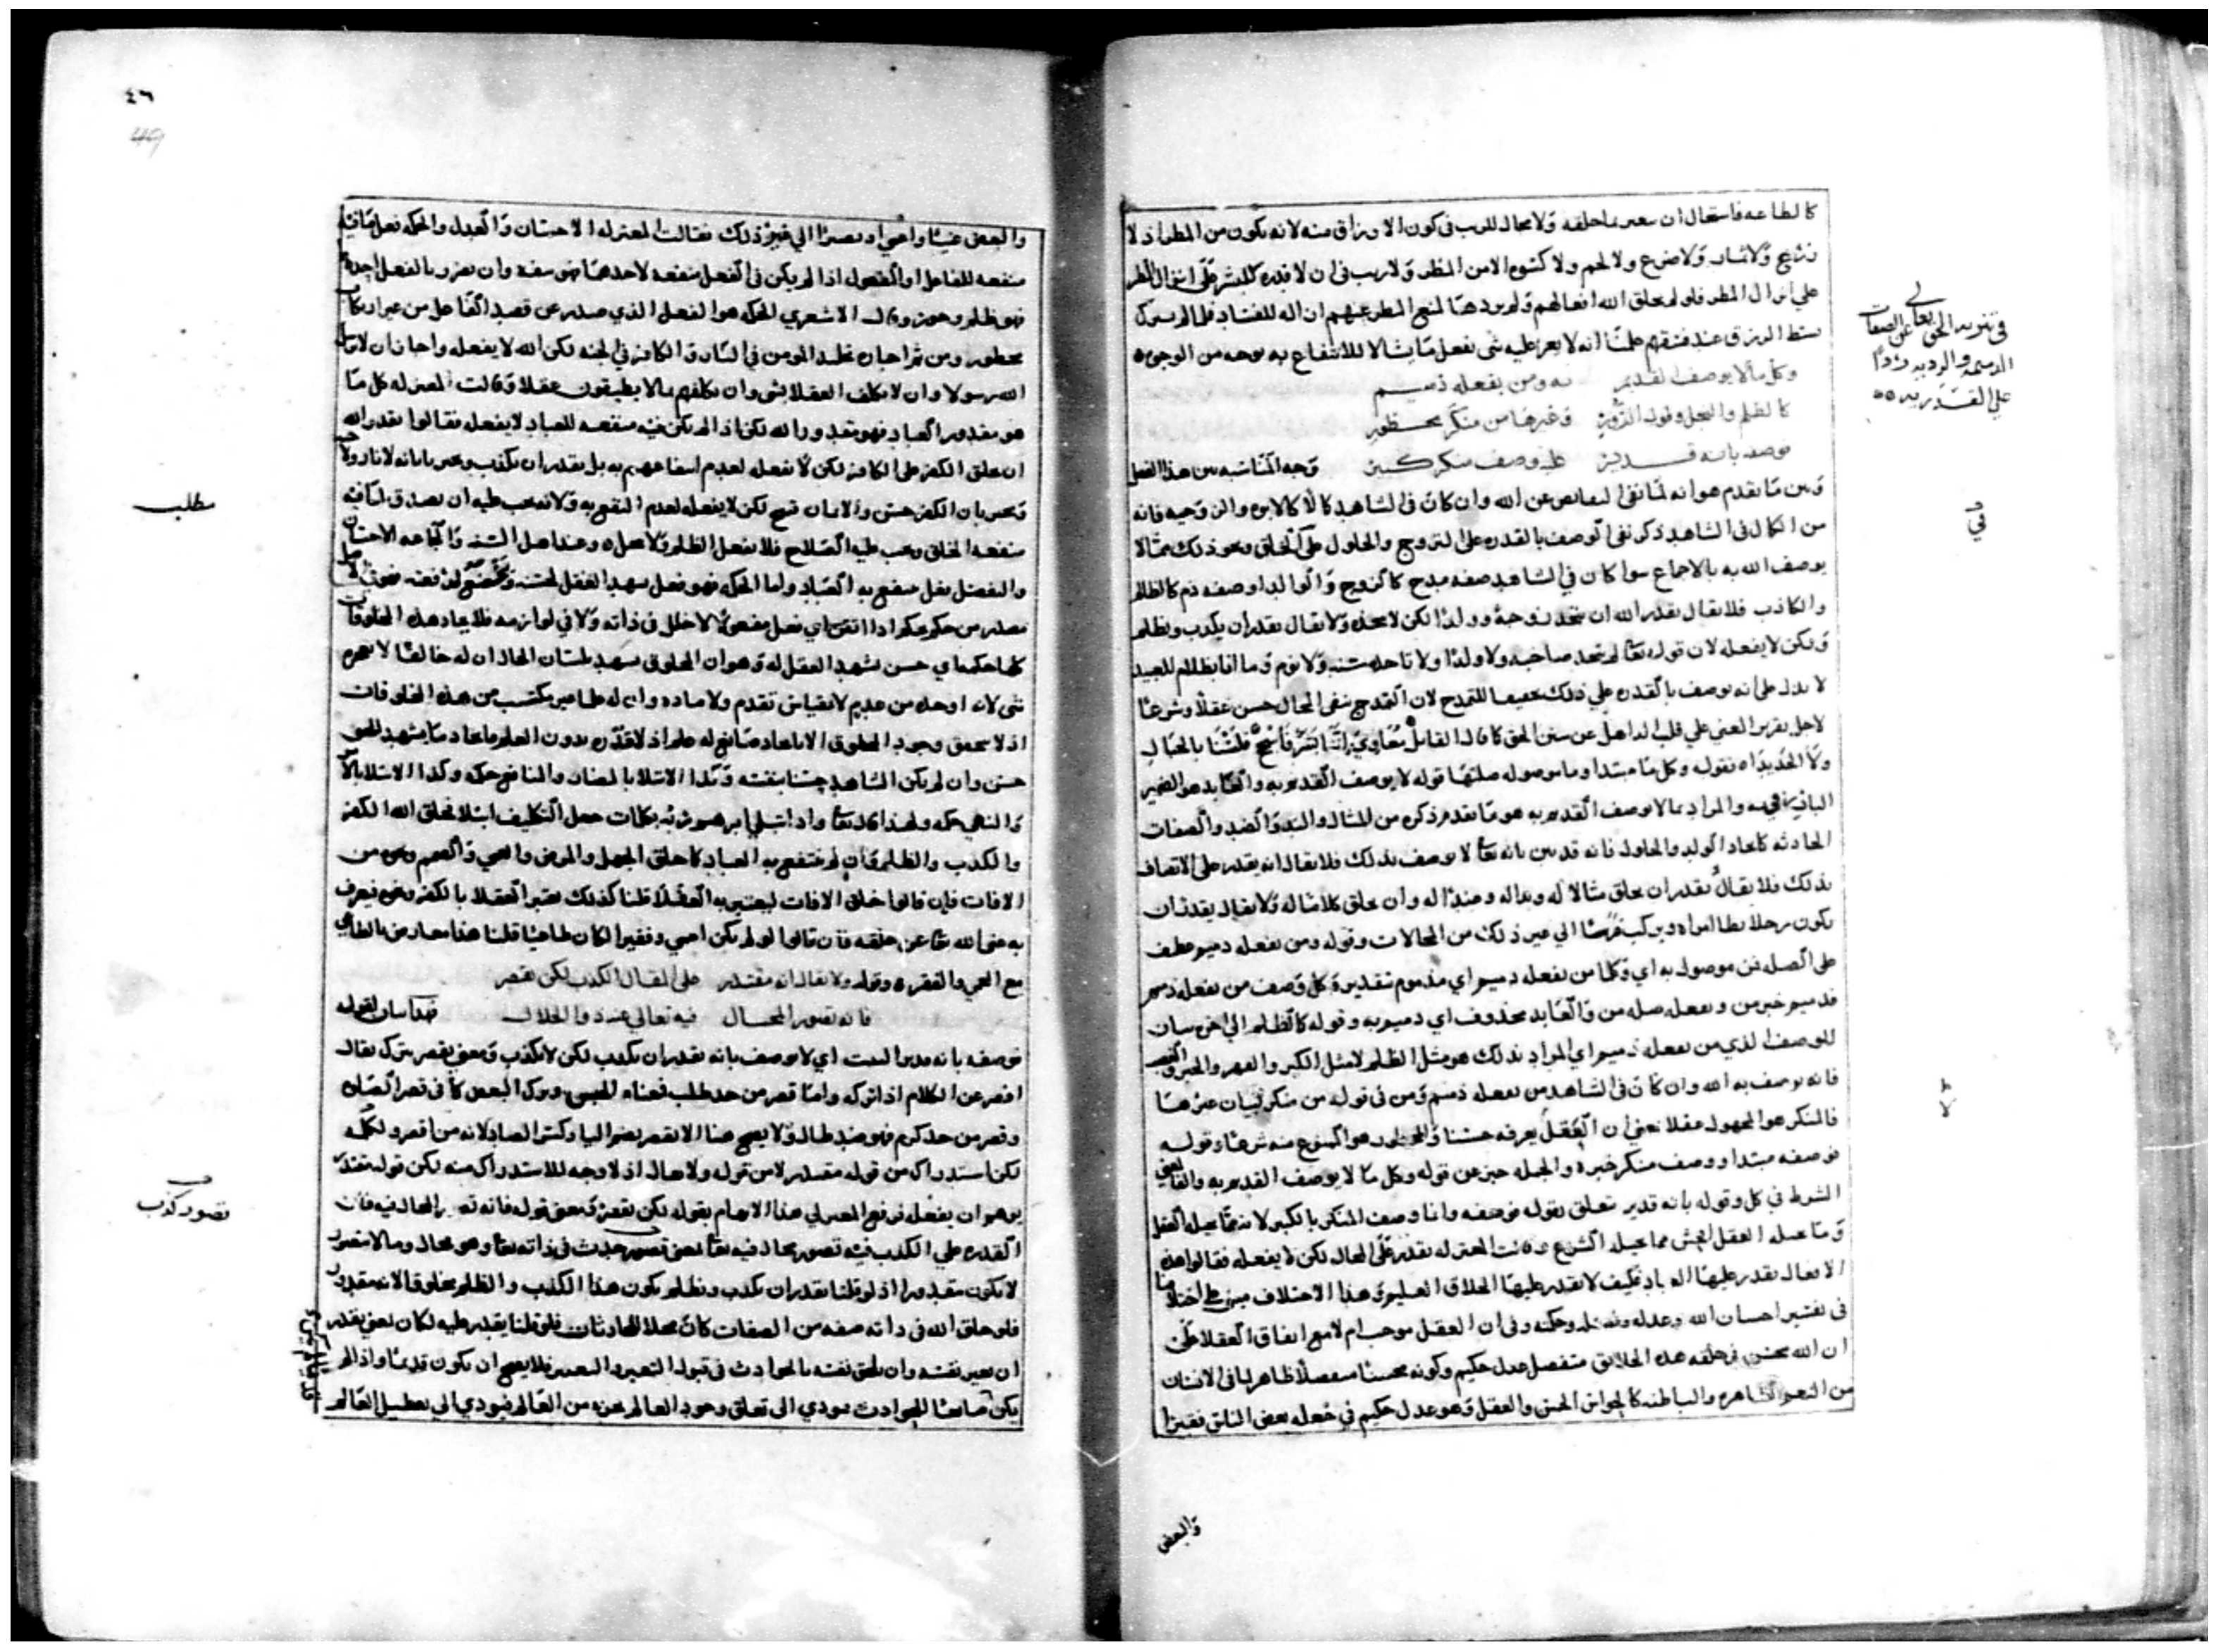 كالطاعه فاستحال ان يعير ما خلقه ولا محال للريب في كون الارزاق منه لانه يكون من المطر اذ لا
زرع ولا ثمار ولا ضرع ولا لحم ولا كسوه الا من المطر ولا ريب في ان لا قدره للبشر على انزال المطر
على انزال المطر فلو لم يخلق الله افعالهم ولم يردها لمنع المطر عنهم
بسط الرزق عند فسقهم علمنا انه لا يعز عليه شي يفعل ما يشا لا للانتفاع به بوجه من الوجوه
وكل ما لا يوصف القديم به ومن يفعله ذميم
كالظلم والبخل وقول الزور وغيرها من منكر محظور
فوصفه بانه قدير عليه وصف منكر كبير وجه المناسبه بين هذا الفصل
وبين ما تقدم هو انه لما نفى النقايص عن الله وان كان في الشاهد كمالا كالابوه والزوجيه فانه
من الكمال في الشاهد ذكر نفي الوصف بالقدره على التزوج والحلول على الخلق ونحو ذلك مما لا
يوصف الله به بالاجماع سوا كان في الشاهد صفه مدح كالزوج والوالد او صفه ذم كالظالم
والكاذب فلا يقال يقدر الله ان يتخذ زوجة وولدا لكن لا يتخذه ولا يقال يقدر ان يكذب ويظلم
ولكن لا يفعله لان قوله تعالى لم يتخذ صاحبه ولا ولدا ولا تاخذه سنه ولا نوم وما انا بظلام للعبيد
لا يدل على انه يوصف بالقدره على ذلك تحقيقا للتمدح لان التمدح بنفي المحال حسن عقلا وشرعا
لاجل تقرير المعنى على قلب الذاهل عن سنن الحق كما قال القايل معاوي اننا بشر فاسجح فلسنا بالجبال
ولا الحديدا قوله وكل ما مبتدا وما موصوله صلتها قوله لا يوصف القديم به والعايد هو الضمير
البارز في به والمراد بما لا يوصف القديم به هو ما تقدم ذكره من المثال والند والضد والصفات
الحادثه كاتحاد الولد والحلول فانه قد بين بانه تعالى لا يوصف بذلك فلا يقال انه يقدر على الاتصاف
بذلك فلا يقال يقدر ان يخلق مثالا له وندا له وضدا له وان يخلق كلاما له ولا يقال يقدر ان
يكون رجلا يطا امراه ويركب فرسا الى غير ذلك من المحالات وقوله ومن يفعله ذميم عطف
على الصله فمن موصول به اي وكل ما من يفعله ذميم اي مذموم تقديره كل وصف من يفعله ذميم
فذميم خبر من ويفعله صله من والعايد محذوف اي ذميم به وقوله كالظلم الى اخره بيان
للوصف الذي من يفعله ذميم اي المراد بذلك هو مثل الظلم لا مثل الكبر والقهر والجبر
فانه يوصف به الله وان كان في الشاهد من يفعله ذميم ومن في قوله من منكر لبيان غيرها
فالمنكر هو المجهول عقلا يعني ان العقل يعرفه حسنا والمحظور هو الممنوع منه شرعا وقوله
فوصفه مبتدا ووصف منكر خبره والجمله خبر عن قوله وكل ما لا يوصف القديم به
الشرط في كل وقوله بانه قدير تتعلق بقوله فوصفه وانما وصف المنكر بالكبير لانه مما يحيله العقل
وما يحيله العقل افحش مما يحيله الشرع وقالت المعتزله يقدر على المحال لكن لا يفعله فقالوا هذه
الافعال يقدر عليها العباد فكيف لا يقدر عليها الخلاق العليم وهذا الاختلاف مبني على اختلافنا
في تفسير احسان الله وعدله وفضله وحكمه وفي ان العقل موجب ام لا مع اتفاق العقلا على
ان الله محسن في خلقه هذه الخلايق متفضل عدل حكيم وكونه محسنا متفضلا ظاهر لما في الانسان
من النعم الظاهره والباطنه كالحواس الخمس والعقل وهو عدل حكيم في جعله بعض الناس فقيرا
والبعض
في تنزيه الحق تعالى عن الصفات
الذميمه والرديه ردا
على القدريه
في
والبعض غنيا واعمى او بصيرا الى غير ذلك فقالت المعتزله الاحسان والعدل والحكمه فعل ما فيه
منفعه للفاعل او المفعول اذا لم يكن في الفعل منفعه لاحدهما فهو سفه وان تضرر بالفعل احدهما
فهو ظلم وجور وقال الاشعري الحكمه هو الفعل الذي صدر عن قصد الفاعل من غير ارتكاب
محظور ومن ثم اجاز تخليد المومن في النار والكافر في الجنه لكن الله لا يفعله واجاز ان لا يرسل
الله رسولا وان لا يكلف العقلا بشي وان يكلفهم بما لا يطيقون عقلا وقالت المعتزله كل ما
هو مقدور العباد فهو مقدور الله لكن اذا لم يكن فيه منفعه للعباد لا يفعله فقالوا يقدر الله
ان يخلق الكفر في الكافر لكن لا يفعله لعدم انتفاعهم به بل يقدر ان يكذب ويخبرنا بانه لا نار ولا جنه
ويخبر بان الكفر حسن والايمان قبيح لكن لا يفعله لعدم النفع به ولانه يجب عليه ان يصدق لما فيه
منفعه الخلق ويجب عليه الصلاح فلا يفعل الظلم وعند اهل السنه والجماعه الاحسان
والتفضل فعل منتفع به العباد واما الحكمه فهو فعل يشهد العقل لحسنه
يصدر من حكيم محكما اذا اتقن اي فعل مفعولا لا خلل في ذاته ولا في لوازمه فلا يجاد هذه المخلوقات
كلها حكمه اي حسن يشهد العقل له وهو ان المخلوق يشهد بلسان الحال ان له خالقا لا يعجزه
شي لانه اوجده من عدم لا بقياس تقدم ولا ماده وان له علما غير مكتسب من هذه المخلوقات
اذ لا يتحقق وجود المخلوق الا بايجاد صانع له علم اذ لا قدره بدون العلم فايجاد ما يشهد للحق
حسن وان لم يكن الشاهد حسنا بنفسه وكذا الابتلا بالمضار والمنافع حكمه وكذا الابتلا بالامر
والنهي حكمه ولهذا قال تعالى واذ ابتلى ابرهيم ربه بكلمات جعل التكليف ابتلا فخلق الله الكفر
والكذب والظلم وان لم ينتفع به العباد كما خلق الجهل والمرض والعمى والصمم ونحوه من
الافات فان قالوا خلق الافات ليعتبر به العقلا قلنا كذلك يعتبر العقلا بالكفر ونحوه فيعرف
به غنى الله تعالى عن خلقه فان قالوا لو لم يكن اعمى وفقيرا لكان طاغيا قلنا هذا معارض بالطاغي
مع العمى والفقر وقوله ولا يقال انه مقتدر على المقال الكذب لكن يقصر
فانه تصور المحال فيه تعالى عنه ذو الجلال هذا بيان لقوله
فوصفه بانه قدير البيت اي لا يوصف بانه يقدر ان يكذب لكن لا يكذب ومعنى يقصر يترك يقال
اقصر عن الكلام اذا تركه واما قصر من حد طلب فمعناه الحبس وترك البعض كما في قصر الصلاه
وقصر من حد كرم فهو ضد طال ولا يصح هنا الا يقصر بضم اليا وكسر الصاد لانه من اقصر وكلمه
لكن استدراك من قوله مقتدر لا من قوله ولا يقال اذ لا وجه للاستدراك منه لكن قوله مقتدر
يوهم ان يفعل فرفع المصر لي هذا الايهام بقوله لكن يقصر ومعنى قوله فانه تصور المحال فيه فان
القدره على الكذب فيه تصور محال فيه تعالى يعني تصور حدث في ذاته تعالى وهو محال وما لا يتصور
لا يكون مقدورا اذ لو قلنا يقدر ان يكذب ويظلم يكون هذا الكذب والظلم مخلوقا لانه مقدور
فلو خلق الله في ذاته صفه من الصفات كان محلا للحادثات فلو قلنا يقدر عليه لكان يعني يقدر
ان يغير نفسه وان يلحق نفسه بالحوادث في قبول التغير والتعدد فلا يصح ان يكون قديما واذا لم
يكن صانعا للحوادث فيودي الى تعلق وجود العالم بغيره من العالم فيودي الى تعطيل العالم
مطلب
تصور كذب
٤٦
49